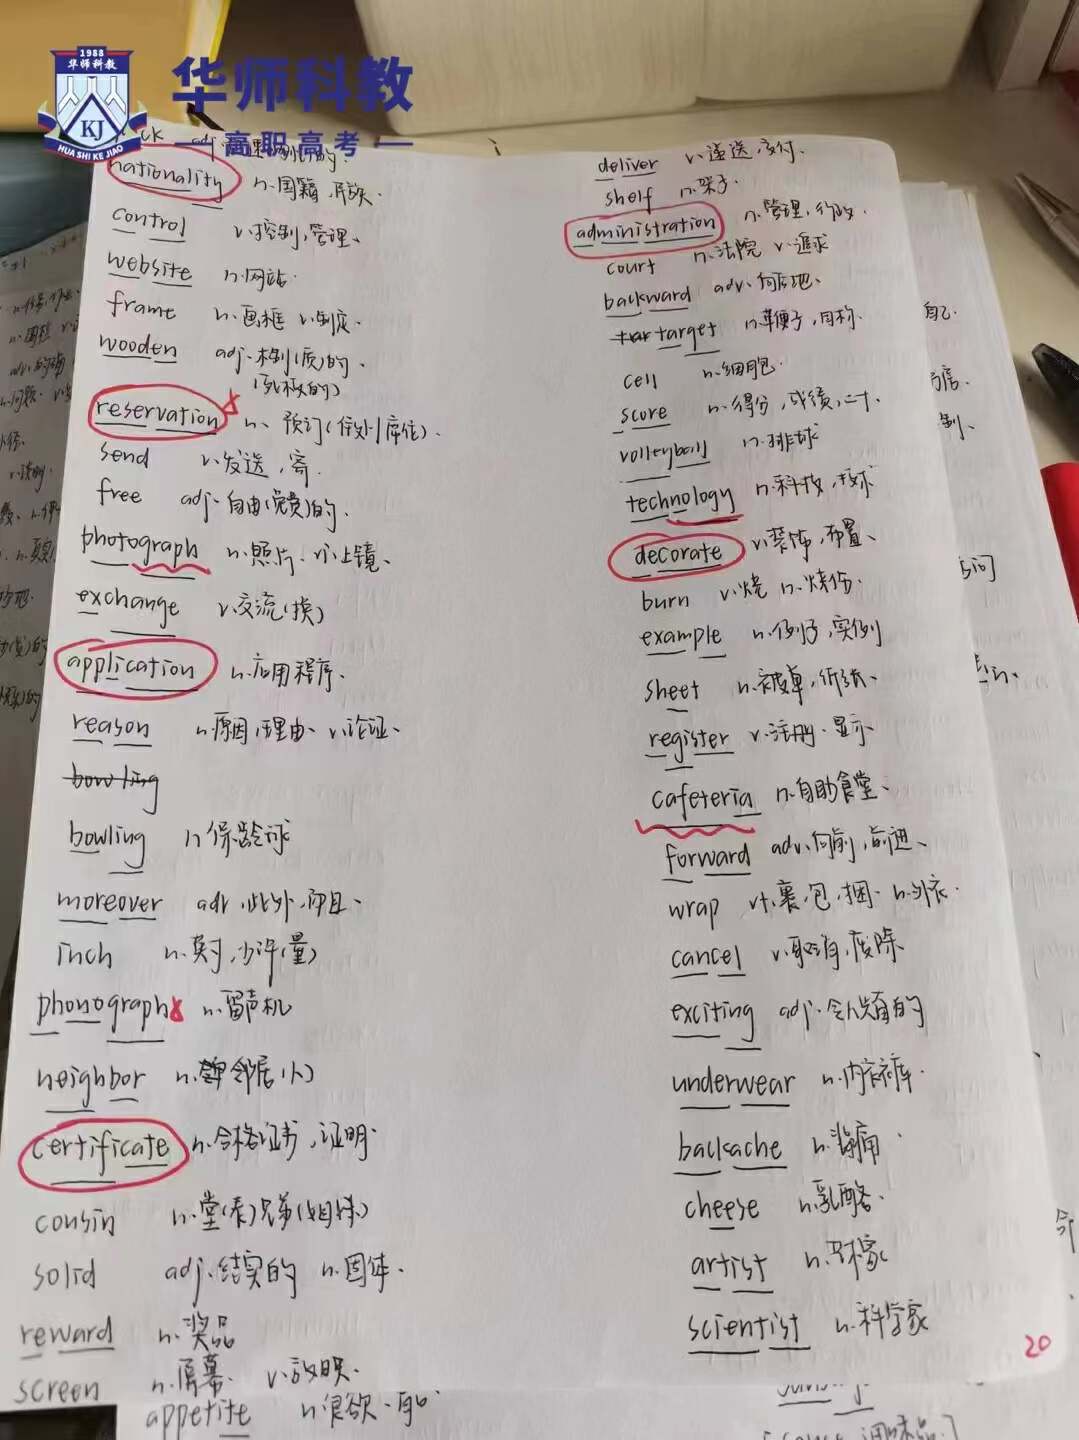 1988
华师科教
KJ
HUA SHI KE JIAO
华师科教
高职高考
nationality n.国籍,民族.
control v.控制,管理、
website n.网站.
frame n.画框 v.制定.
wooden adj.木制(质)的.
reservation n. 预订(住处、席位).
send v.发送,寄.
free adj.自由(免费)的.
photograph n.照片. v.上镜、
exchange v.交流(换)
application n.应用程序、
reason n.原因,理由、v.论证、
bowling
bowling n.保龄球
moreover adv.此外,而且、
inch n.英寸,少许(量)
phonograph n.留声机
neighbor n.邻居
certificate n.合格证书,证明.
cousin n.堂(表)兄弟(姐妹)
solid adj.结实的 n.固体.
reward n.奖品
screen n.屏幕. v.放映.
appetite n.食欲.
deliver v.递送,交付.
shelf n.架子.
administration n.管理,行政.
court n.法院 v.追求
backward adv.向后地.
target n.靶子,目标.
cell n.细胞.
score n.得分,成绩,二十.
volleyball n.排球
technology n.科技,技术
decorate v.装饰,布置、
burn v.烧 n.烧伤.
example n.例子,实例
sheet n.被单,纸张、
register v.注册.显示
cafeteria n.自助食堂、
forward adv.向前,前进、
wrap vt.裹,包,捆. n.外衣.
cancel v.取消,废除、
exciting adj.令人兴奋的
underwear n.内衣裤.
backache n.背痛.
cheese n.乳酪.
artist n.艺术家
scientist n.科学家
20